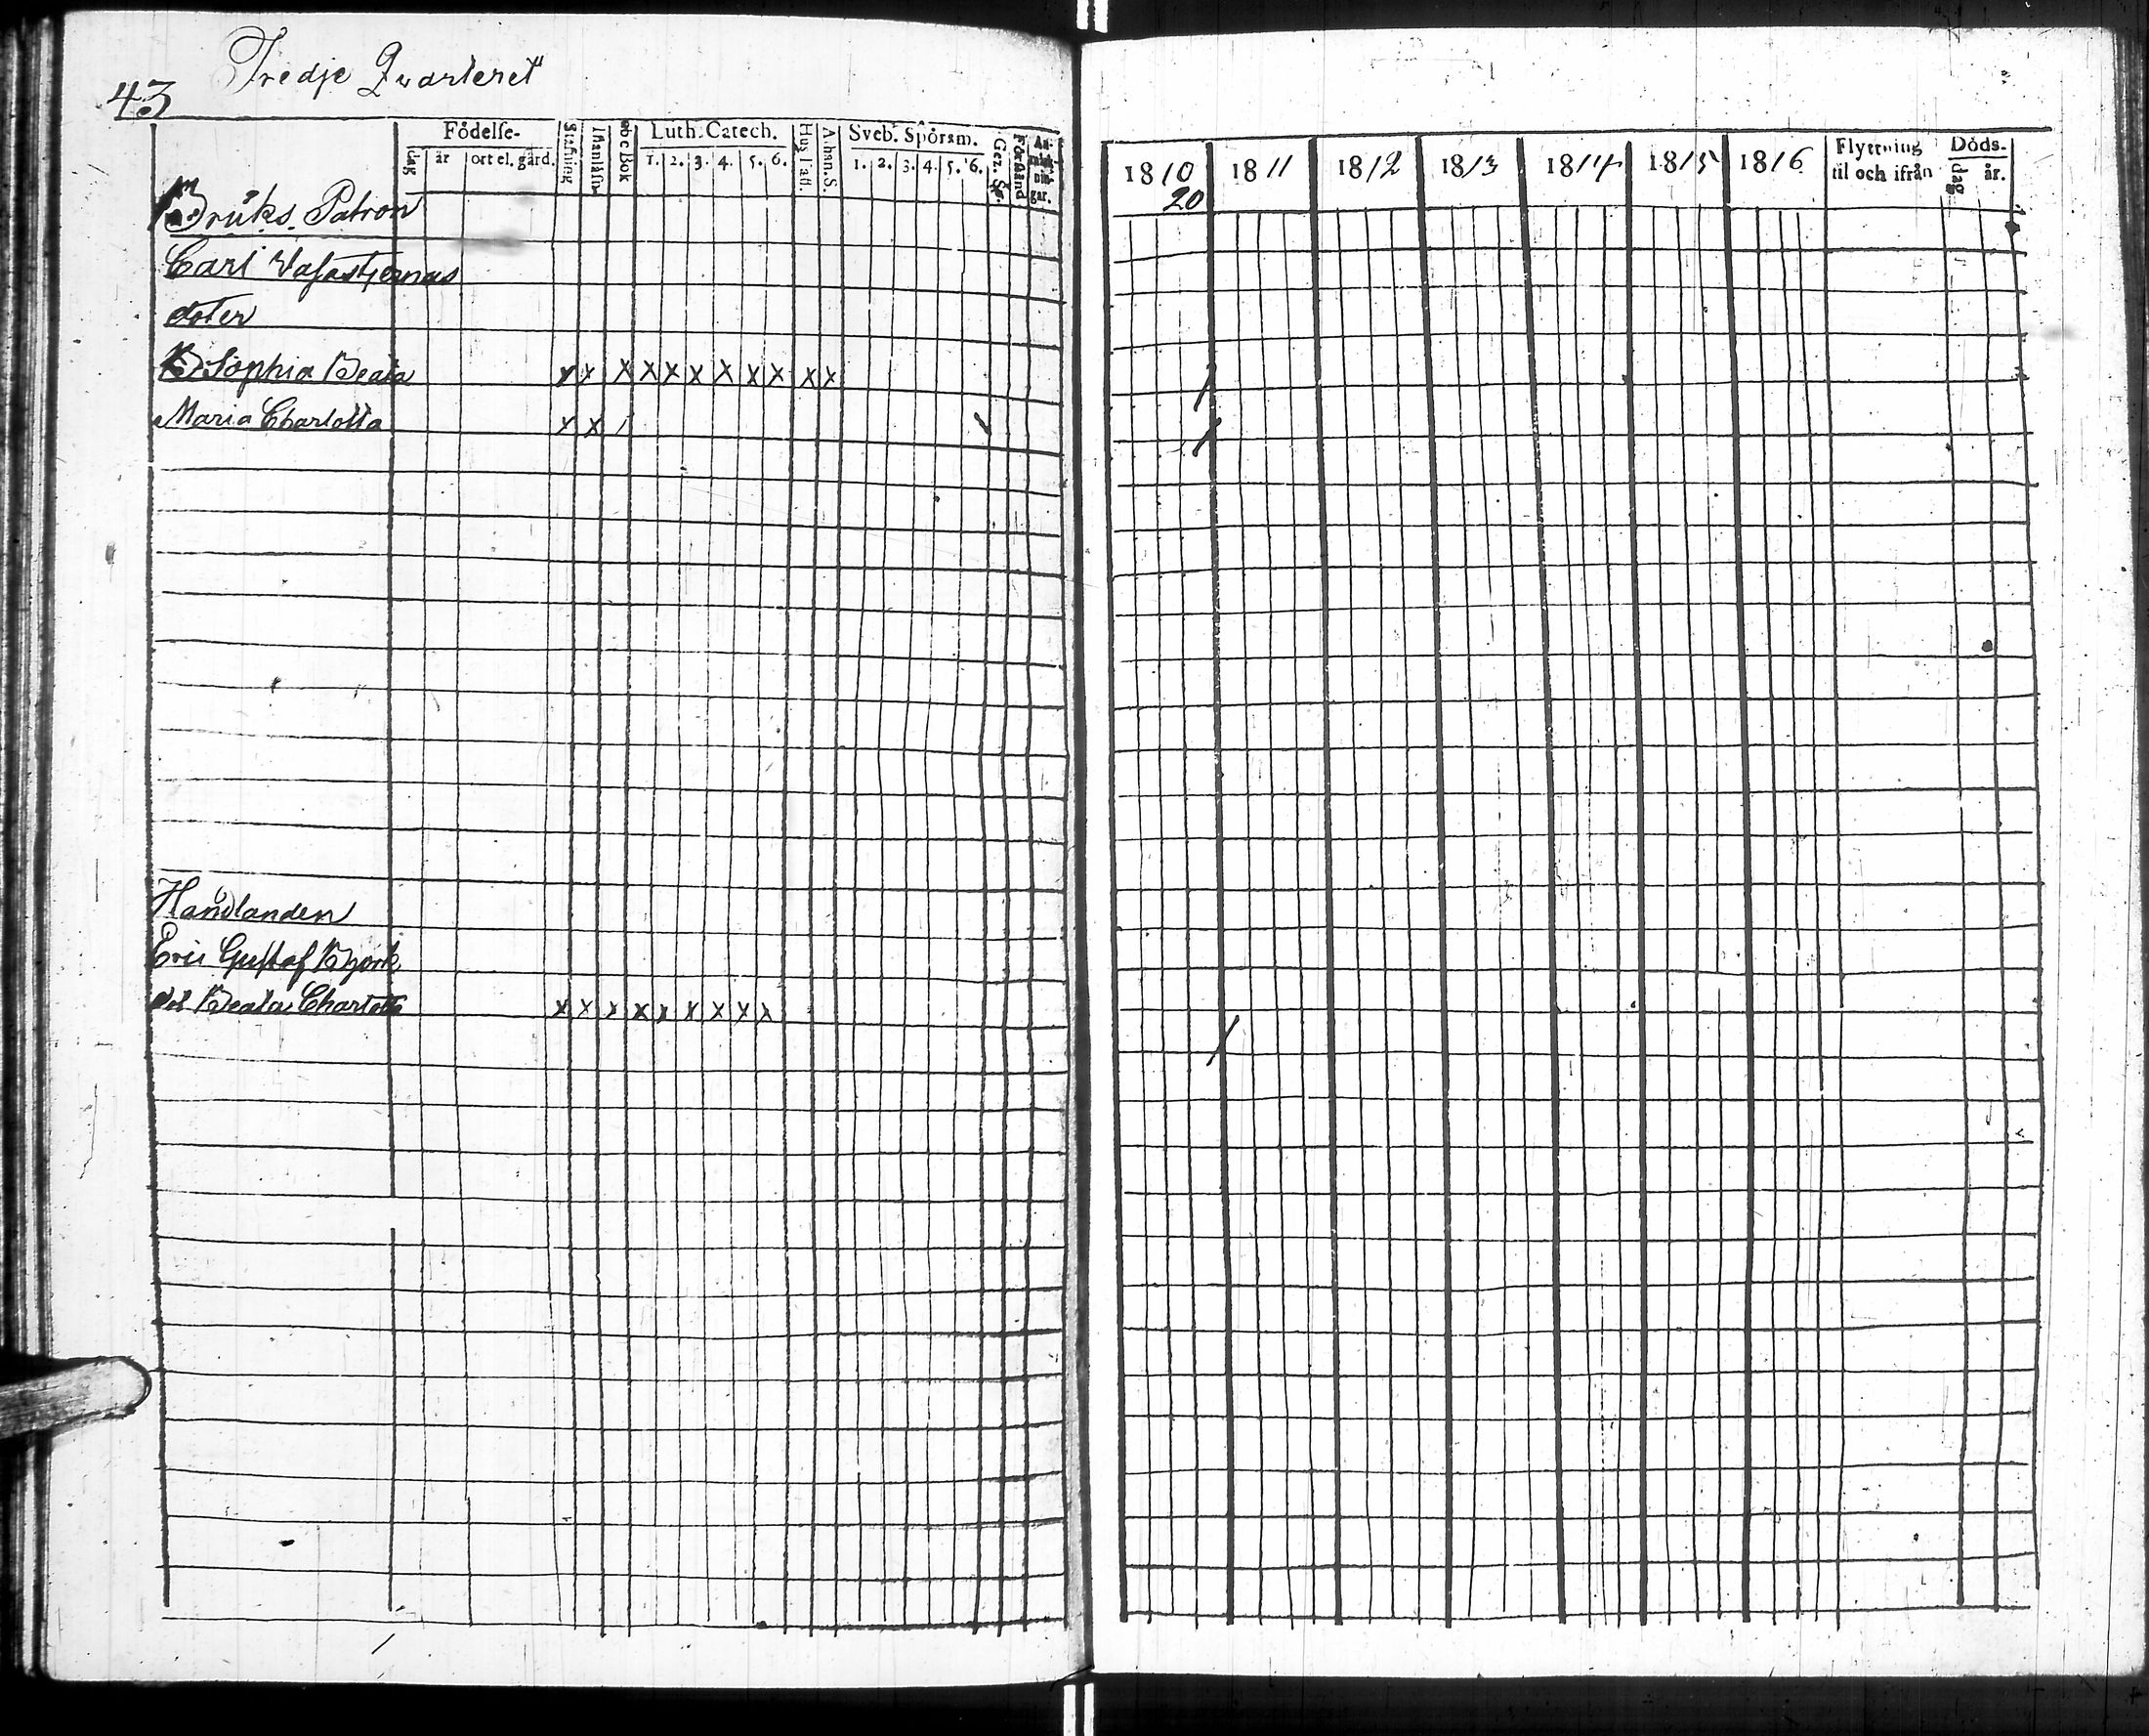 43
Tredje Qvarteret
Födelse-
dag
år
ort el. gård.
Stafning
Innanläsn.
abc Bok
Luth. Catech.
1. 2. 3. 4. 5. 6.
Hus Tafl.
Athan. S.
Sveb. Spörsm.
1. 2. 3. 4. 5. 6.
Förstånd
An-
märk-
nin-
gar.
Bruks Patron
Carl Vasastjernas
doter
Sophia Beata x x x x x x x x x x x
Maria Charlotta x x /
Handlanden
Eric Gustaf Björk
dot Beata Charlotta x x x x x x x x x
1810 1811 1812 1813 1814 1815 1816
20
Flyttning
til och ifrån
Döds-
dag
år.